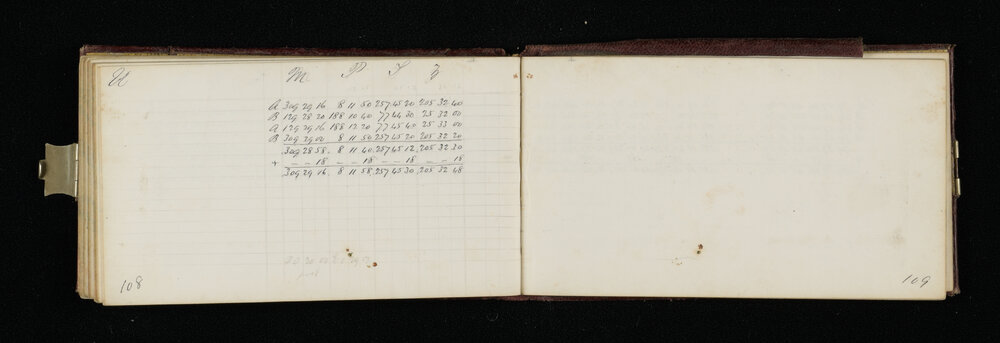 U M P S Z
A 309 29 16 8 11 50 257 45 20 205 32 40
B 129 28 20 188 10 40 77 44 30 25 32 00
A 129 29 16 188 12 20 77 45 40 25 33 00
B 309 29 00 8 11 50 257 45 20 205 32 20
309 28 58. 8 11 40. 257 45 12. 205 32 30
+ - - 18 - - 18 - - 18 - - 18
309 29 16. 8 11 58. 257 45 30. 205 32 48
108
109